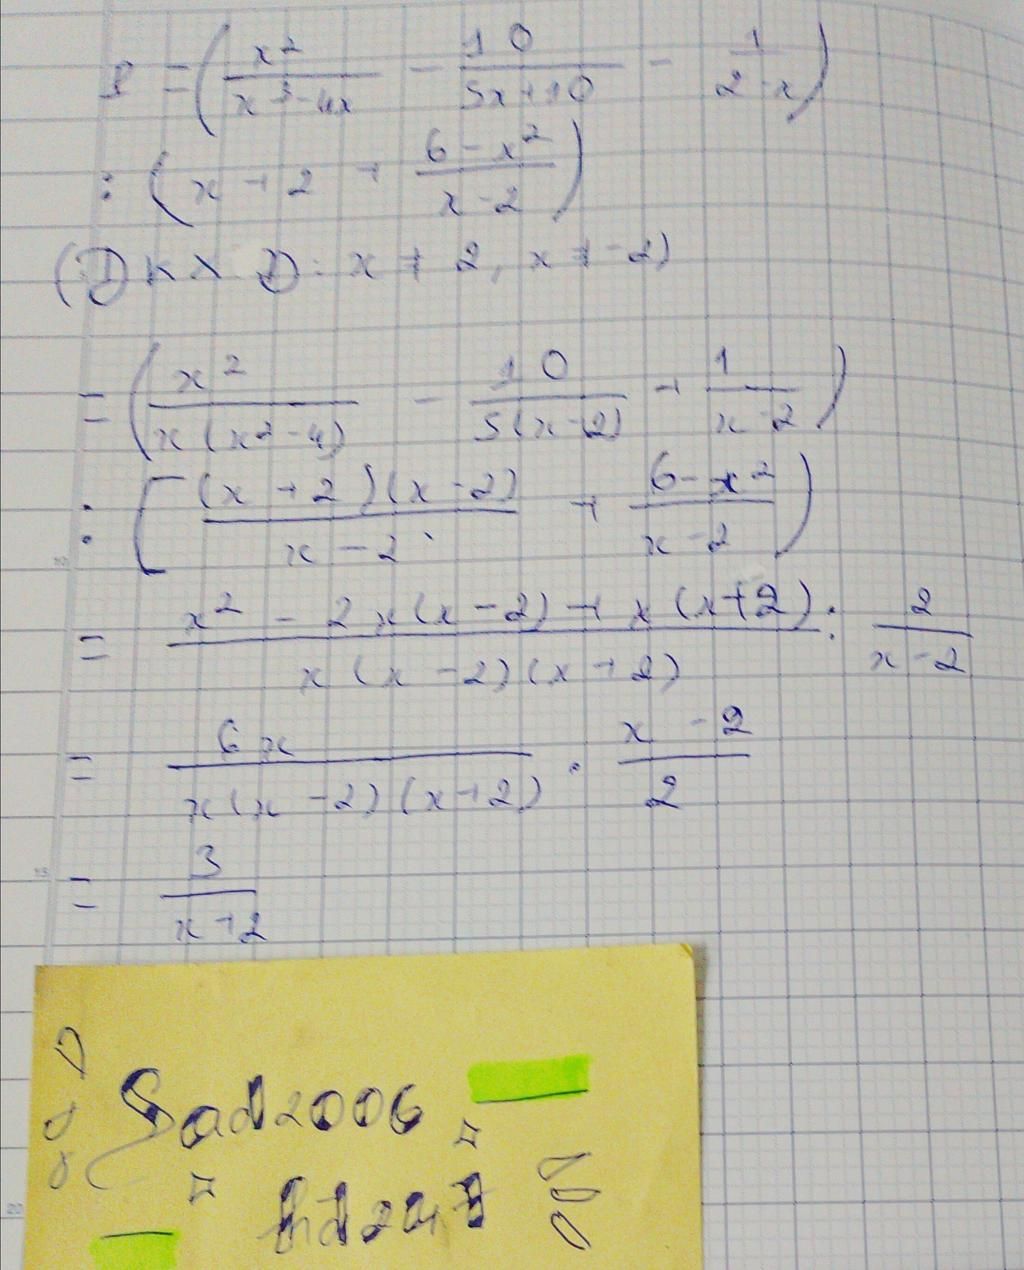 P = (x²/(x³-4x) - 10/(5x+10) - 1/(2-x))
: (x + 2 + (6-x²)/(x-2))
(ĐKXĐ: x ≠ 2, x ≠ -2)
= (x²/(x(x²-4)) - 10/(5(x-2)) + 1/(x-2))
: [(x+2)(x-2)/(x-2) + (6-x²)/(x-2))
= (x² - 2x(x-2) + x(x+2))/(x(x-2)(x+2)) : 2/(x-2)
= 6x/(x(x-2)(x+2)) · (x-2)/2
= 3/(x+2)
Sad2006
hd247